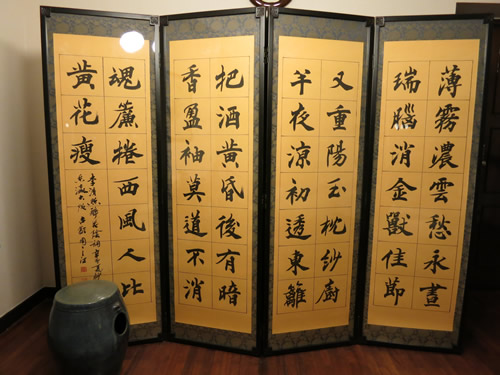 薄霧濃雲愁永晝
瑞腦消金獸佳節
又重陽玉枕紗廚
半夜涼初透東籬
把酒黄昏後有暗
香盈袖莫道不消
魂簾捲西風人比
黄花瘦
李清照醉花陰詞